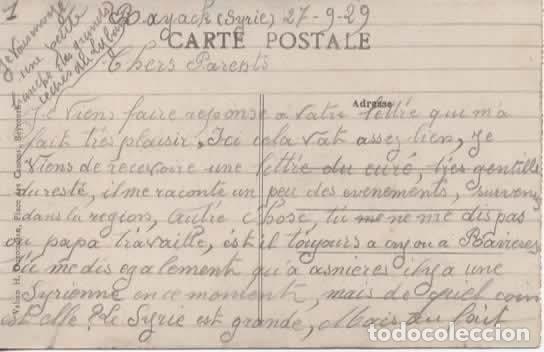 1
Rayack (Syrie) 27-9-29
CARTE POSTALE
Je vous envoye
une petite
branche des grands
cèdres du Liban
Chers Parents
Adresse
Je viens faire reponse a votre lettre qui m'a
fait très plaisir, Ici cela vat assez bien, Je
viens de recevoire une lettre du curé, très gentille
du resté, il me raconte un peu des evenements, survenus
dans la région, Autre chose, tu me ne me dis pas
ou papa travaille, est il toujours a ou a Ravières
me dis egalement qu'a asnieres il y a une
Syrienne en ce moment, mais de quiel coin
est elle? Le Syrie est grande, Mais du Tout